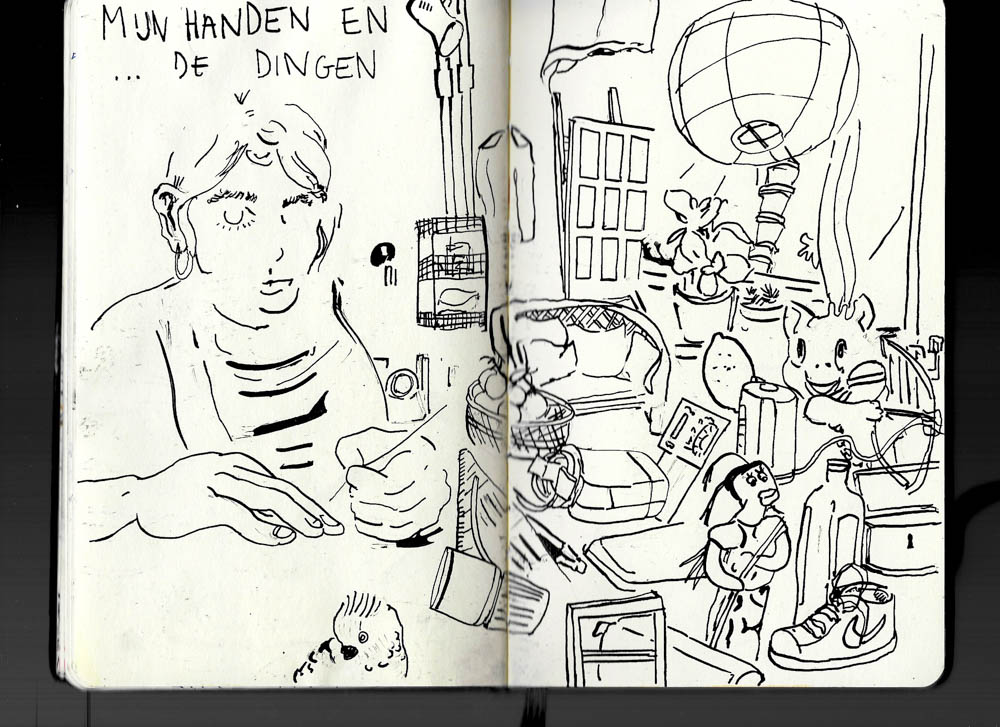 MIJN HANDEN EN
... DE DINGEN